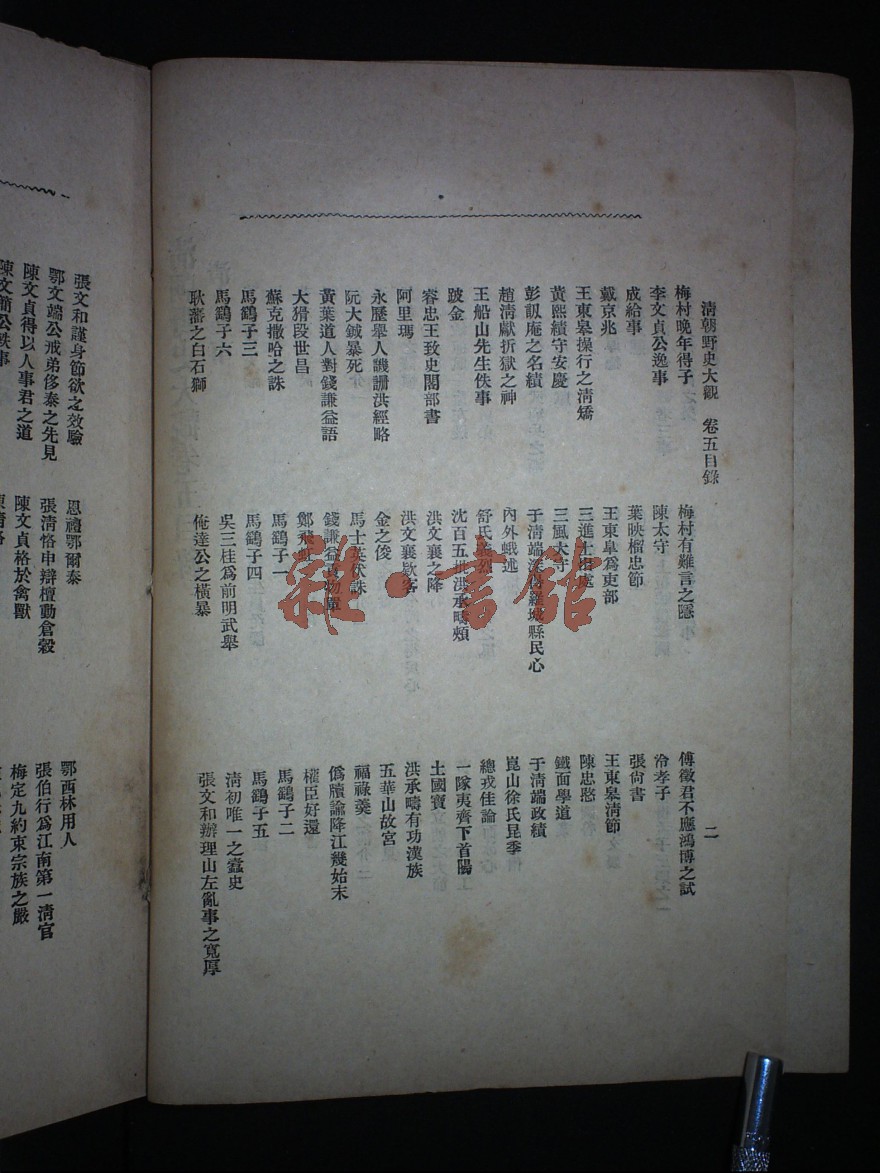 清朝野史大觀 卷五目錄 二
梅村晚年得子
梅村有難言之隱
傅徵君不應鴻博之試
李文貞公逸事
陳太守
泠孝子
成給事
葉映榴忠節
張尙書
戴京兆
王東皐爲吏部
王東皋淸節
王東皋操行之淸矯
三進士出處
陳忠愍
黃熙績守安慶
三風太守
鐵面學道
彭訒庵之名績
于淸端深得羅城縣民心
于淸端政績
趙淸獻折獄之神
內外蛾述
崑山徐氏昆季
王船山先生佚事
舒氏義烈
總戎佳論
跛金
沈百五批洪承疇頰
一隊夷齊下首陽
睿忠王致史閣部書
洪文襄之降
土國寶
阿里瑪
洪文襄欵客
洪承疇有功漢族
永歷舉人譏訕洪經略
金之俊
五華山故宮
阮大鋮暴死
馬士英伏誅
福祿羹
黃葉道人對錢謙益語
錢謙益物單
僞牘諭降江幾始末
大猾段世昌
鄭飛虹
權臣好還
蘇克撒哈之誅
馬鷂子一
馬鷂子二
馬鷂子三
馬鷂子四
馬鷂子五
馬鷂子六
吳三桂爲前明武舉
淸初唯一之蠹史
耿藩之白石獅
俺達公之橫暴
張文和辦理山左亂事之寬厚
張文和謹身節欲之效驗
恩禮鄂爾泰
鄂西林用人
鄂文端公戒弟侈泰之先見
張淸恪申辯擅動倉穀
張伯行爲江南第一淸官
陳文貞得以人事君之道
陳文貞格於禽獸
梅定九約束宗族之嚴
陳文簡公軼事
雜·書館